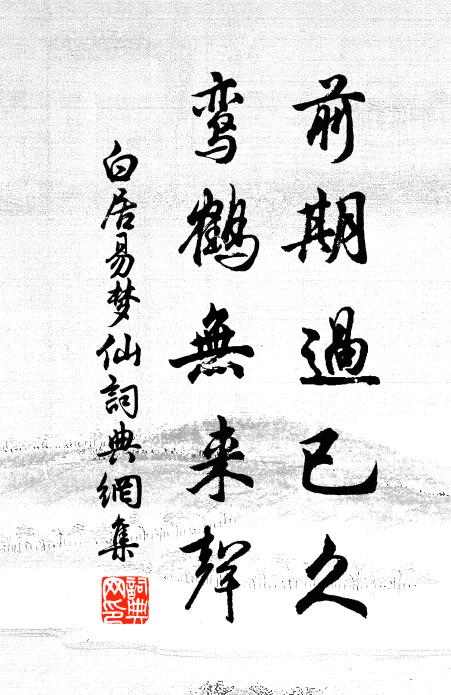 前期過已久
鸾鶴無来聲
白居易梦仙詞典網集
詞典
网印